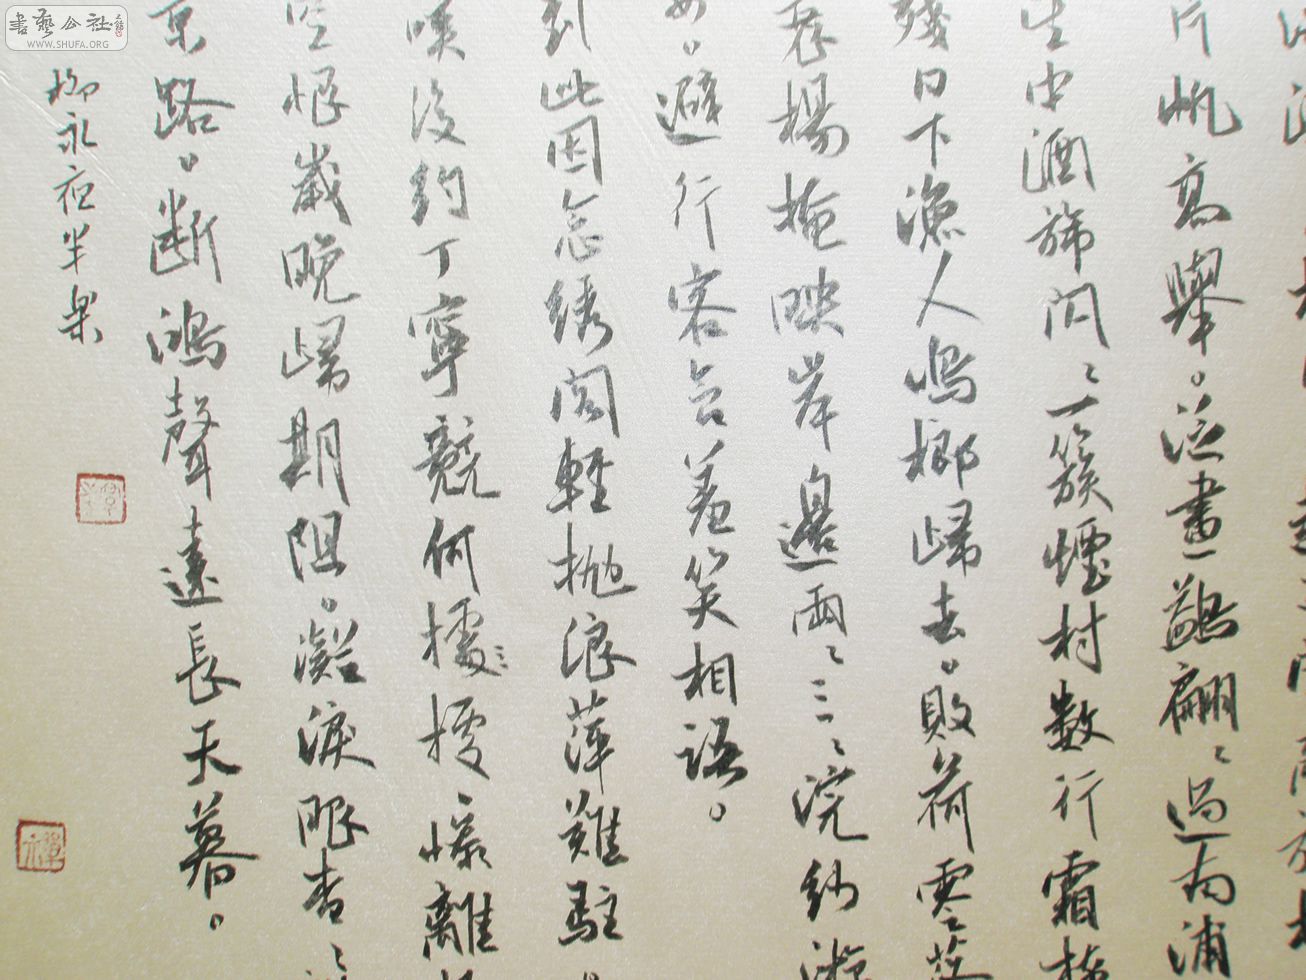 片帆高舉。泛畫鷁翩〻過南浦
望中酒旆閃〻一簇煙村数行霜樹
殘日下漁人鳴榔歸去。敗荷零落
衰楊掩映岸邊兩〻三〻浣紗游
女。避行客含羞笑相語。
到此因念绣閣輕拋浪萍難駐
嘆後約丁寧競何據據慘離
空恨歲晚歸期阻。凝淚眼杳〻
京路。断鴻聲遠長天暮。
柳永夜半樂
書藝公社
WWW.SHUFA.ORG